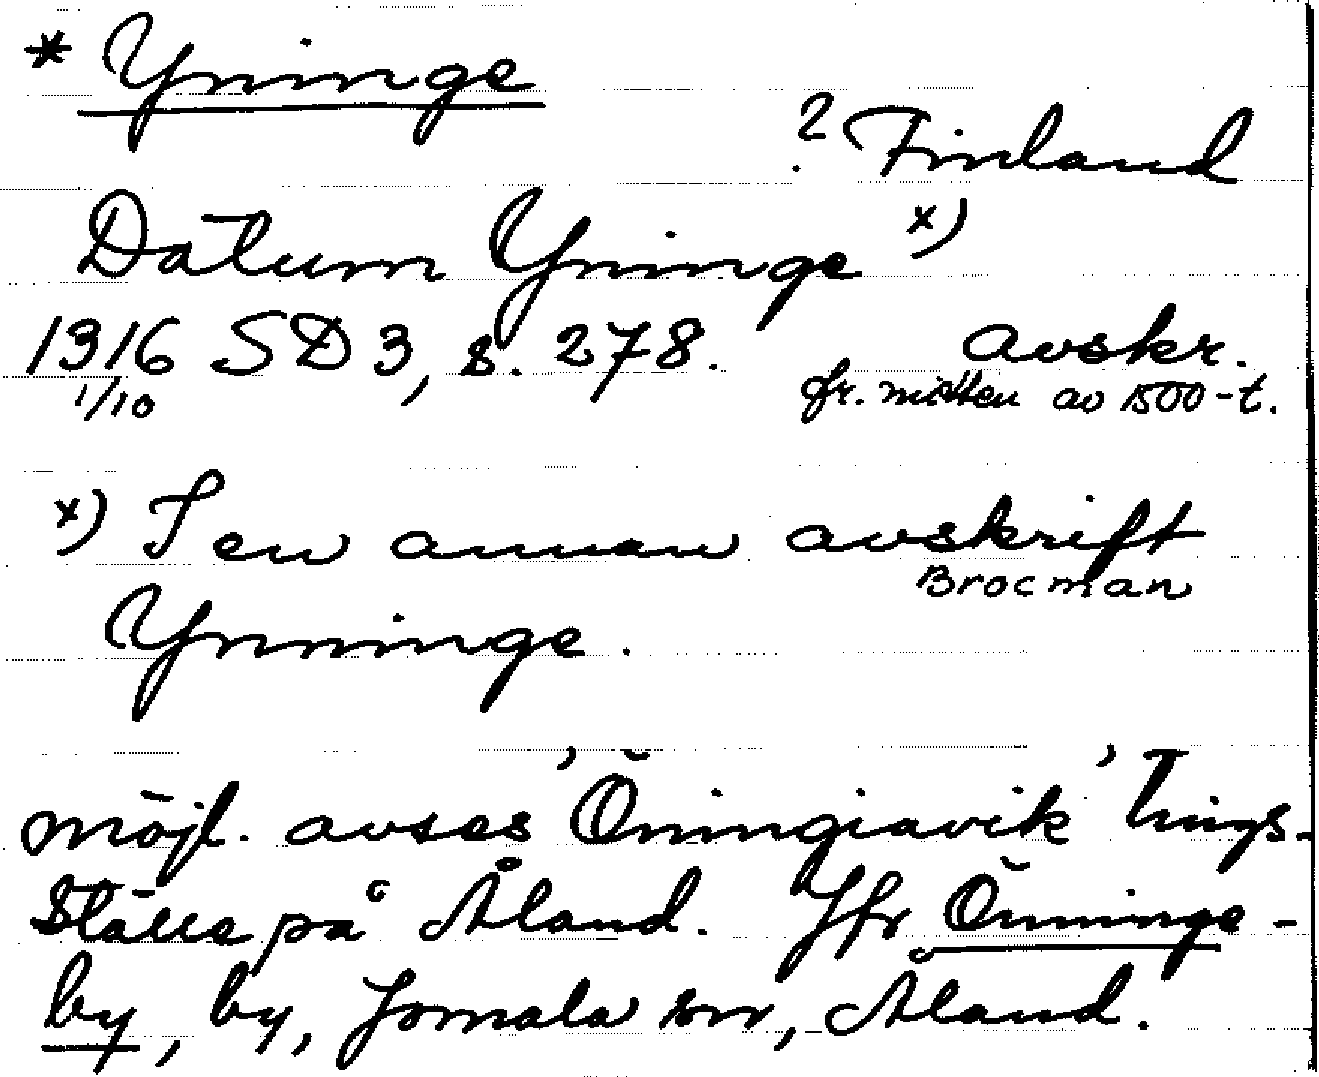 * Yninge
? Finland
Datum Yninge x)
1316 SD 3, s. 278. avskr.
1/10 fr. mitten av 1500-t.
x) I en annan avskrift
Brocman
Ynninge.
möjl. avses 'Öningiavik' Tings-
ställe på Åland. Jfr Önninge-
by, by, Jomala sn, Åland.